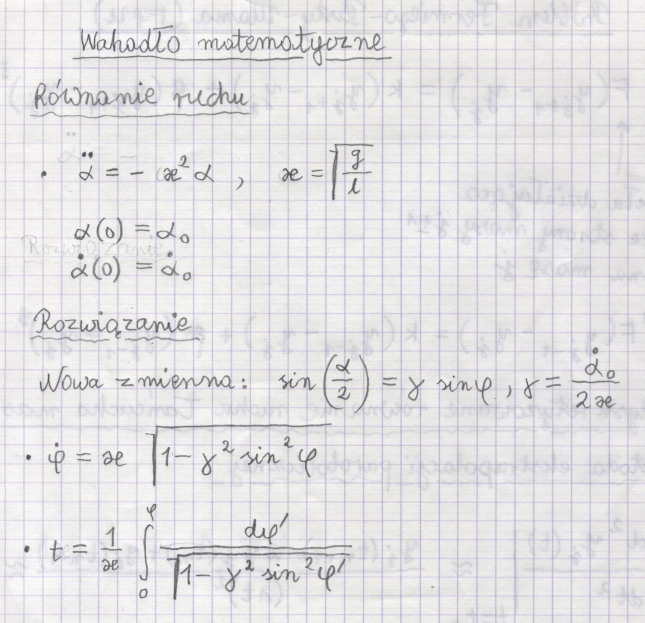 Wahadło matematyczne
Równanie ruchu
• α̈ = - æ² α , æ = √(g/l)
α(0) = α₀
α̇(0) = α̇₀
Rozwiązanie
Nowa zmienna: sin(α/2) = γ sinφ , γ = α̇₀/2æ
• φ̇ = æ √(1 - γ² sin² φ)
• t = 1/æ ∫₀^φ dφ'/√(1 - γ² sin² φ')